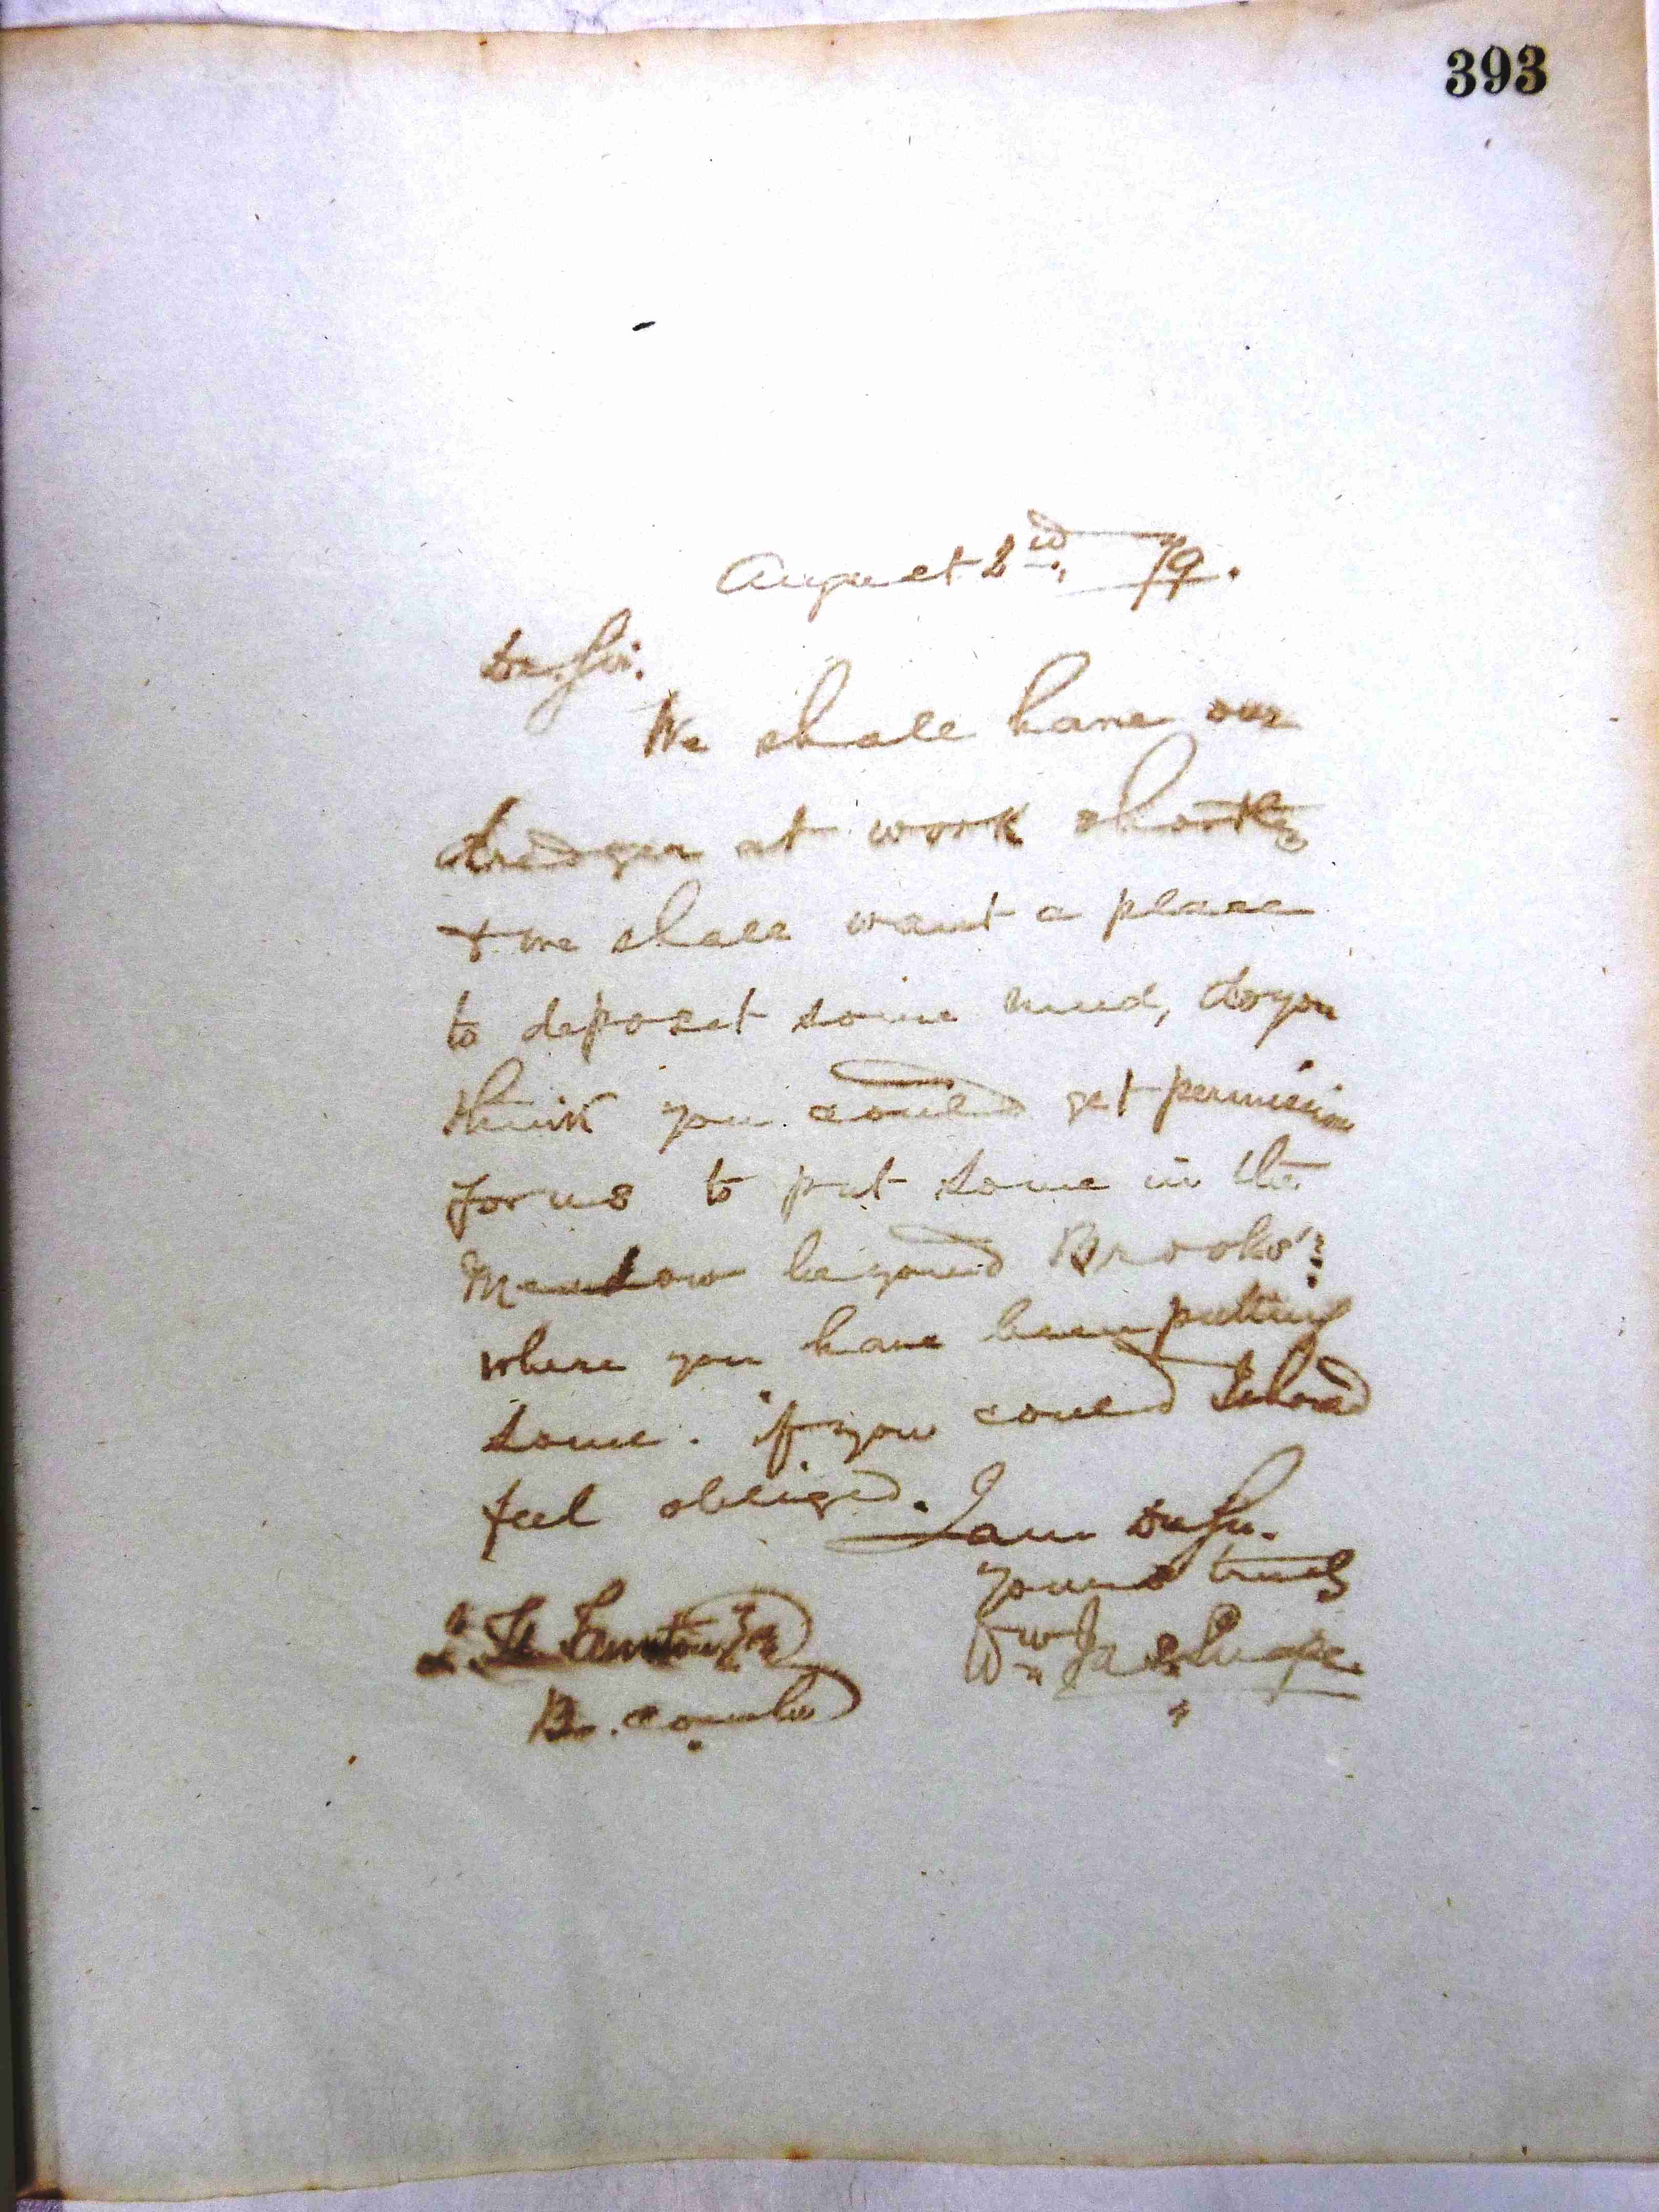 393
August 2nd, 79.
De. Sir.
We shall have our
dredger at work shortly
& we shall want a place
to deposit some mud, do you
think you could get permission
for us to put some in the
Meadow beyond Brooks'?
where you have been putting
some. if you could I should
feel obliged. I am De Sir.
yours truly
Wm